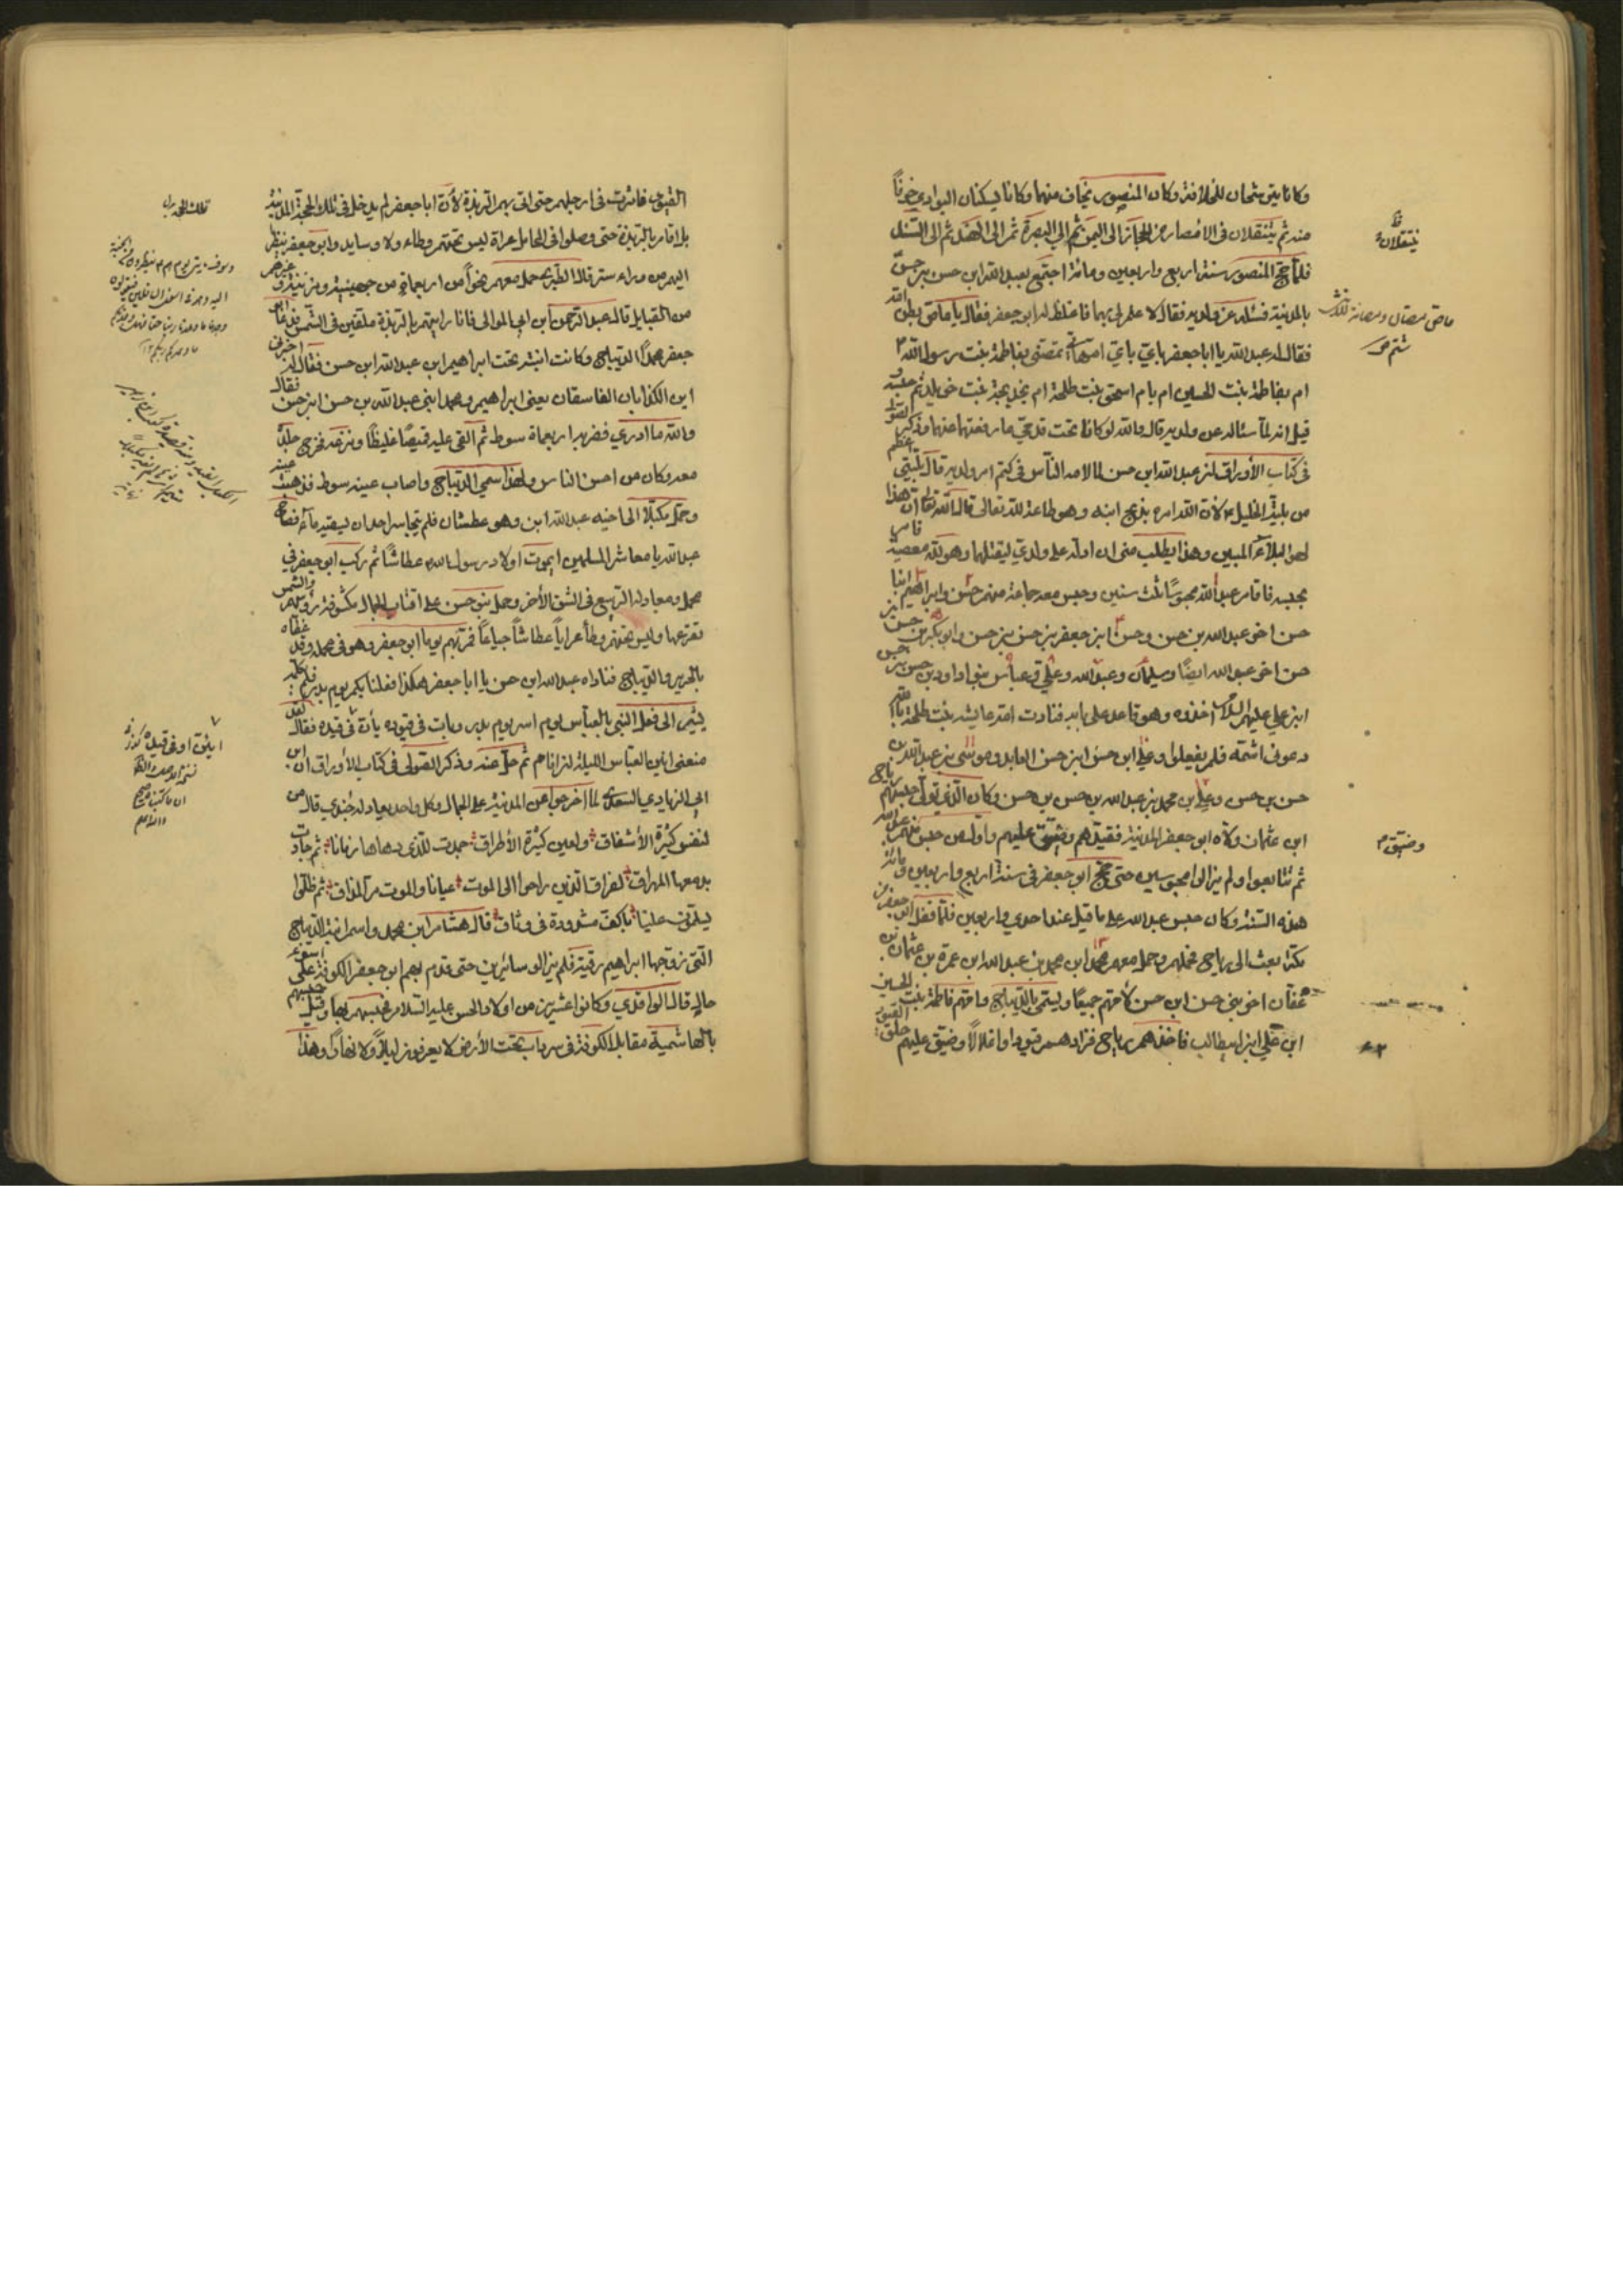 وكانا يترشحان للخلافة وكان المنصور يخاف منهما وكانا يسكنان البوادي خوفاً
منه ثم يتنقلان في الامصار من الحجاز الى اليمن ثم الى البصرة ثم الى الهند ثم الى السند
فلما حج المنصور سنة اربع واربعين ومائة اجتمع بعبد الله ابن حسن بن حسن
بالمدينة فسئله عن ولديه فقال لا علم لي بهما فاغلظ له ابو جعفر فقال يا ماص بظر امه
فقال له عبد الله يا ابا جعفر باي امهاتي تمصني بفاطمة بنت رسول الله
ام بفاطمة بنت الحسين ام بام اسحق بنت طلحة ام بخديجة بنت خويلد ثم حبسه و
قيل انه لما سئاله عن ولديه قال والله لو كانا تحت قدمي ما رفعتها عنهما وذكر الصولي
في كتاب الأوراق ان عبد الله ابن حسن لما لامه الناس في كتم امر ولديه قال بليتي اعظم
من بلية الخليل لان الله امره بذبح ابنه وهو طاعة لله تعالى قال الله تعالى ان هذا
لهو البلاء المبين وهذا يطلب مني ان ادله على ولدي ليقتلهما وهو لله معصية فامر
بحبسه فاقام عبد الله محبوساً ثلث سنين وحبس معه جماعة منهم حسن وابراهيم ابنا
حسن اخو عبد الله بن حسن وحسن ابن جعفر بن حسن بن حسن وابو بكر بن حسن بن
حسن اخو عبد الله ايضاً وسليمان وعبد الله وعلي وعباس بنو داود بن حسن بن حسن
ابن علي عليهم السلام اخذوه وهو قاعد على بابه فنادت امه عايشه بنت طلحة بالله
دعوني اشمه فلم يفعلوا وعلي ابن حسن ابن حسن العابد وموسى بن عبد الله بن
حسن بن حسن وعلي بن محمد بن عبد الله بن حسن بن حسن وكان الذي تولى حبسهم رياح
ابن عثمان ولاه ابو جعفر المدينة فقيدهم وضيق عليهم واول من حبس منهم عبد الله
ثم تتابعوا ولم يزالوا محبوسين حتى حج ابو جعفر في سنة اربع واربعين ومائة
هذه السنة وكان حبس عبد الله على ما قيل عندا حدي واربعين فلما قفل ابو جعفر من
مكة بعث الى رياح فحملهم وحمل معهم محمد ابن محمد بن عبد الله ابن عمرو بن عثمان بن
عفان اخو بني حسن ابن حسن لأمهم جميعاً ويسمى بالديباج وامهم فاطمة بنت الحسين
ابن علي ابن ابيطالب فاخذهم رياح فزادهم قيوداً واغلالاً وضيق عليهم حلق القيود
يتنقلان
شتم ص
وضيق م
القيود فاثرت في ارجلهم حتى اتى بهم الربذة لأن ابا جعفر لم يدخل في تلك الحجة المدينة
بل اقام بالربذة حتى وصلوا في المحامل عراة ليس تحتهم وطاء ولا وسايد وابو جعفر ينظر
اليهم من وراء ستر قال الطبري حمل معهم نحواً من اربعمائة من جهينة ومزينة وغيرهم
من القبايل قال عبد الرحمن ابن ابي الموالي فانا رايتهم بالربذة ملقين في الشمس فدعا ابو
جعفر محمداً الديباج وكانت ابنته تحت ابراهيم ابن عبد الله ابن حسن فقال له اخبرني
اين الكذابان الفاسقان يعني ابراهيم ومحمد ابني عبد الله بن حسن ابن حسن فقال
والله ما ادري فضربه اربعماة سوط ثم القى عليه قميصاً غليظاً ونزعه فخرج جلده
معه وكان من احسن الناس ولهذا سمي الديباج واصاب عينه سوط فذهبت عينه
وحمل مكبلاً الى اخيه عبد الله ابن وهو عطشان فلم يتجاسر احد ان يسقيه ماء فصاح
عبد الله يا معاشر المسلمين ايموت اولاد رسول الله عطاشاً ثم ركب ابو جعفر في
محمل ومعادله الربيع في الشق الأخر وحمل بنو حسن على اقتاب الجمال مكشوفة رؤسهم والشمس
تقرعها وليس تحتهم وطأ عراياً عطاشاً جياعاً فمر بهم يوماً ابو جعفر وهو في محمله وقد غطاه
بالحرير والديباج فناداه عبد الله ابن حسن يا ابا جعفر هكذا فعلنا بكم يوم بدر فلم يكلمه
يشير الى فعل النبي بالعباس يوم اسر يوم بدر وبات في قيوده يأن في قيده فقال لقد
منعني انين العباس الليلة ان انام ثم حل عنه وذكر الصولي في كتاب الأوراق ان ابن
ابي الزيادي السعدي لما اخرجوا من المدينة على الجمال وكل واحد يعادله جندي قال من
لنفس كثيرة الأشفاق ولعين كثيرة الأطراق جمدت للذي دهاها زمانا ثم جادت
بدمعها المهراق لفراق الذين راحوا الى الموت عيانا والموت مر المذاق ثم ظلوا
يسلمون علينا باكف مشدودة في وثاق قال هشام ابن محمد واسم ابنة الديباج
التي تزوجها ابراهيم رقية فلم يزالو سائرين حتى قدم بهم ابو جعفر الكوفة على اسوء
حال قال الواقدي وكانوا عشرين من اولاد الحسن عليه السلام فحبسهم بها وقيل حبسهم
بالهاشمية مقابل الكوفة في سرداب تحت الأرض لا يعرفون ليلاً ولا نهاراً وهذا